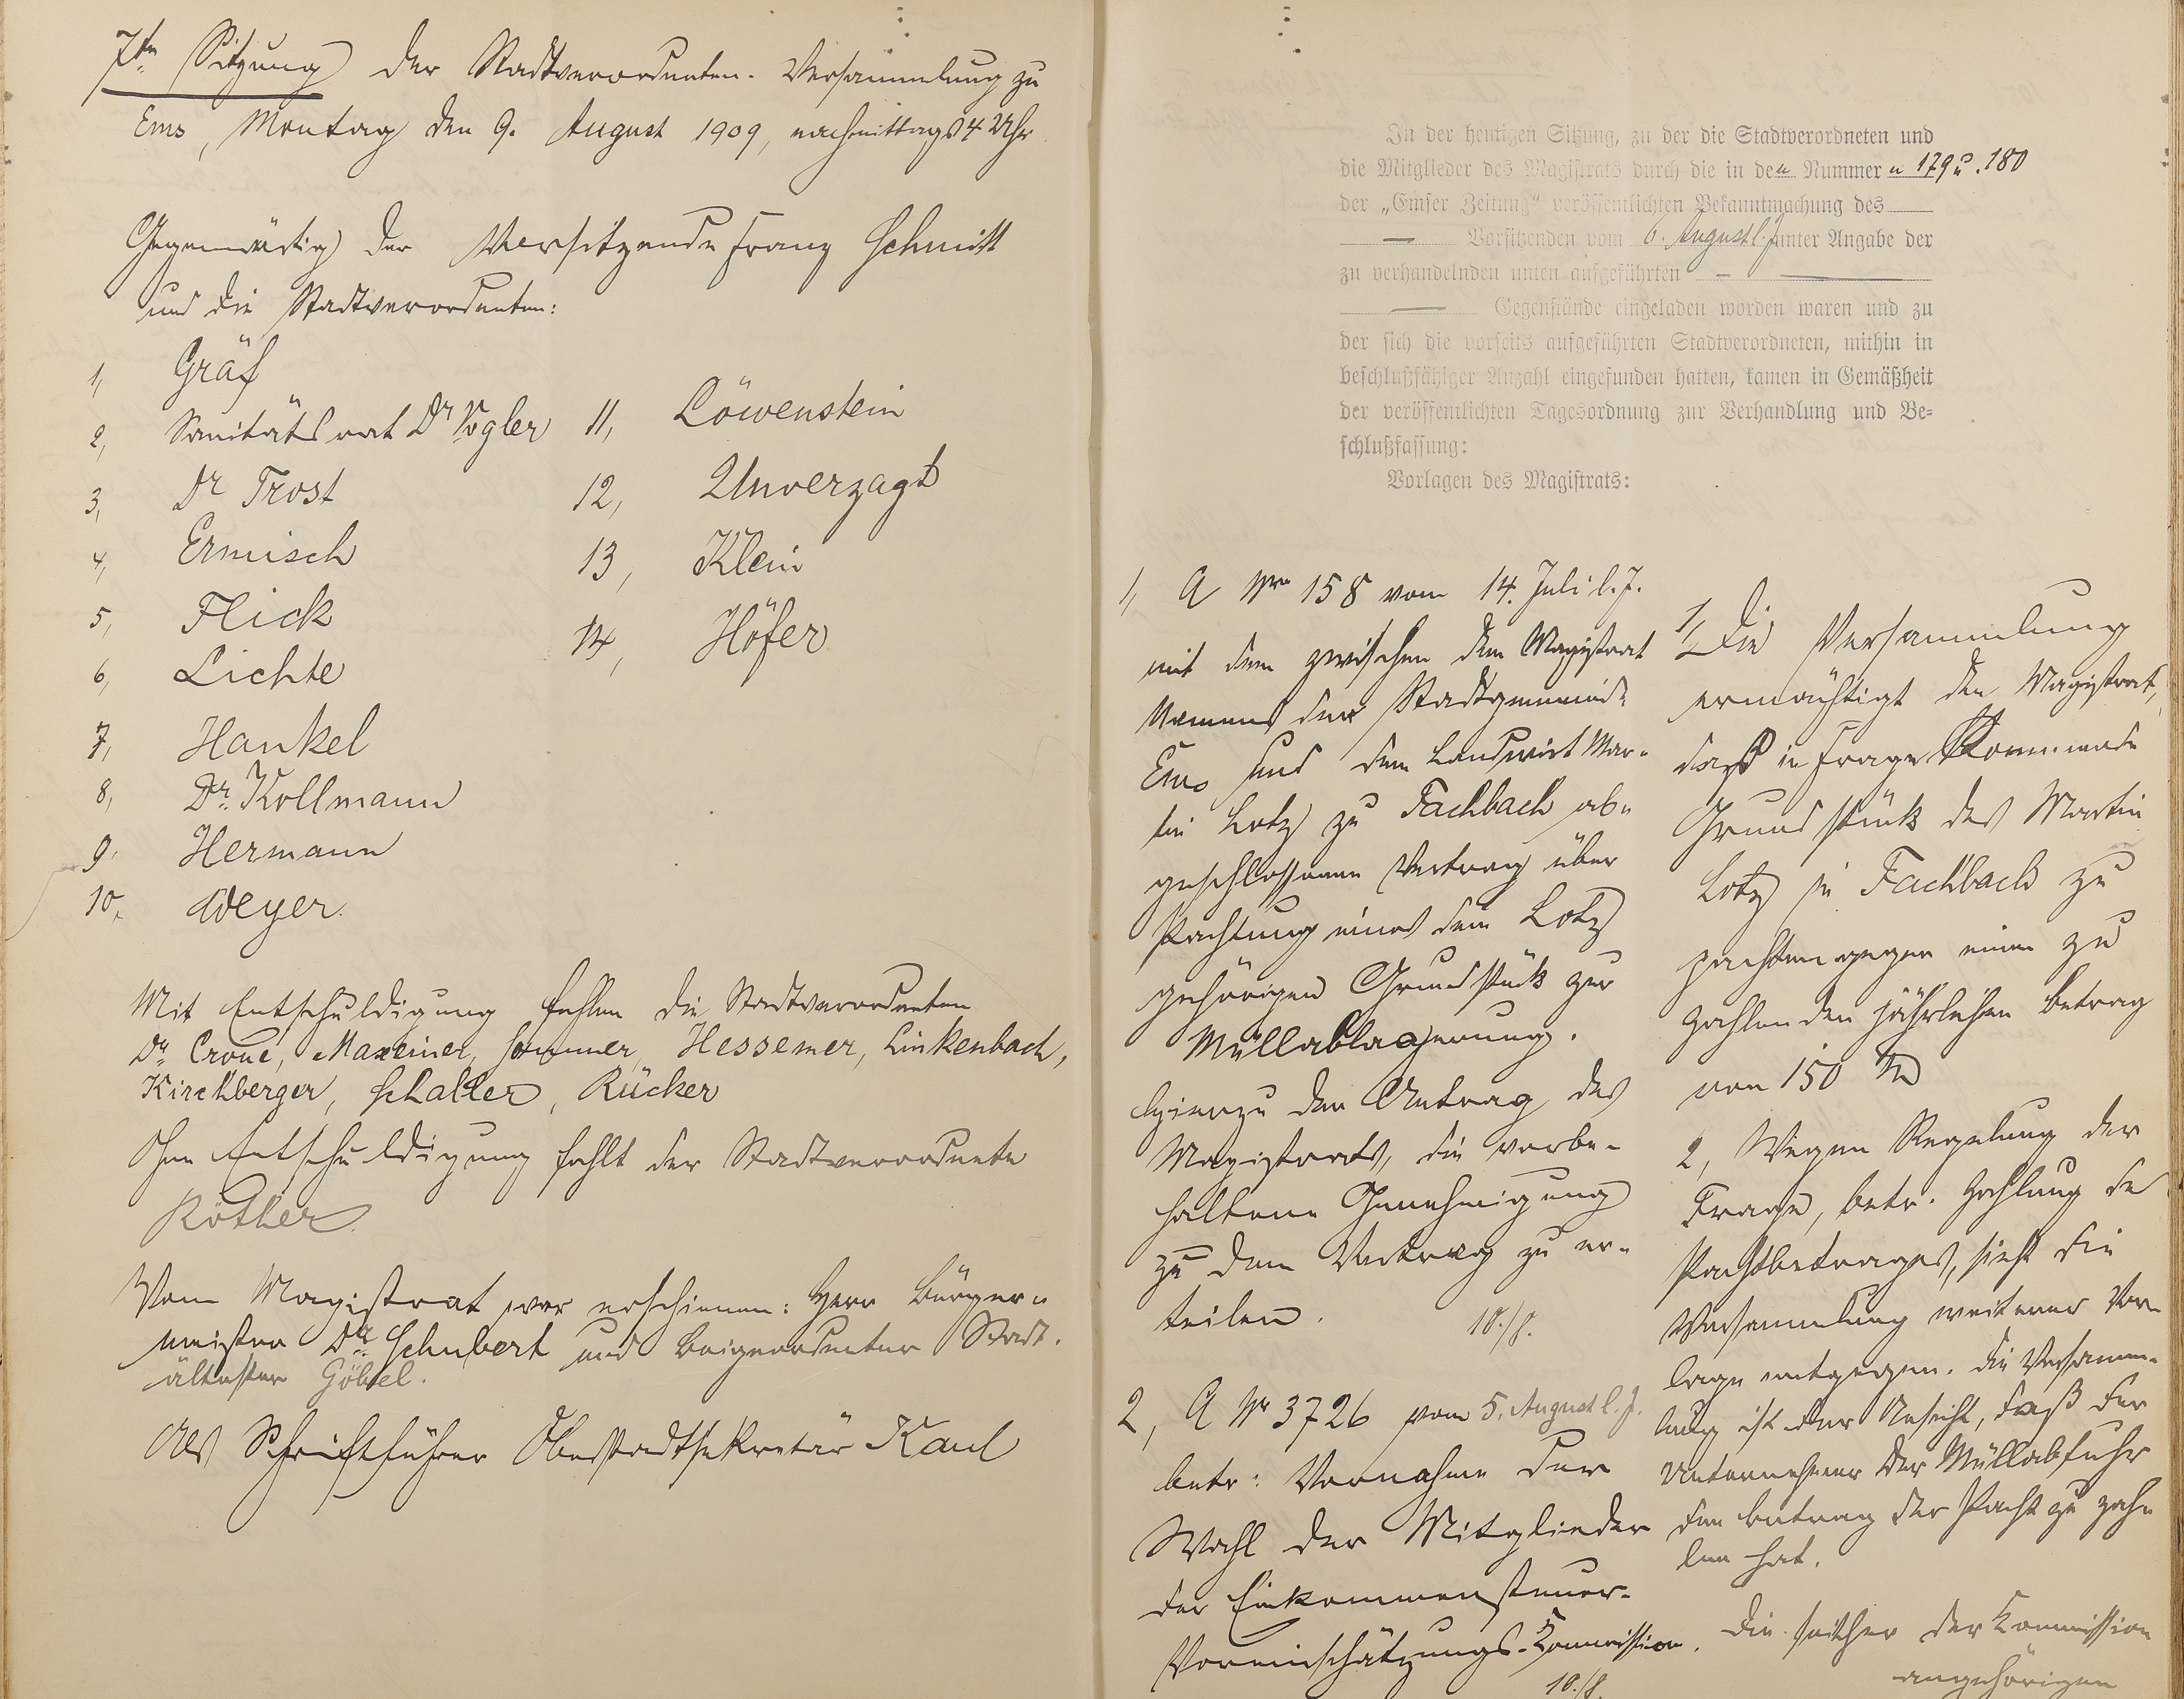 7te Sitzung der Stadtverordneten-Versammlung zu
Ems, Montag den 9. August 1909, nachmittags 4 Uhr
Gegenwärtig der Vorsitzende Franz Schmitt
und die Stadtverordneten:
1, Gräf
2, Sanitätsrat Dr Vogler
3, Dr Trost
4, Ermisch
5, Flick
6, Lichte
7, Hankel
8, Dr. Kollmann
9, Hermann
10, Weyer.
11, Löwenstein
12, Unverzagt
13, Klein
14, Höfer
Mit Entschuldigung fehlen die Stadtverordneten
Dr Croué, Maxeiner, Sommer, Hessemer, Linkenbach,
Kirchberger, Schaller, Rücker
Ohne Entschuldigung fehlt der Stadtverordnete
Röther.
Vom Magistrat war erschienen: Herr Bürger-
meister Dr. Schubert und Beigeordneter Stadt-
ältester Göbel.
Als Schriftführer Oberstadtsekretär Kaul
In der heutigen Sitzung, zu der die Stadtverordneten und
die Mitglieder des Magistrats durch die in den Nummer n 179 u. 180
der „Emser Zeitung“ veröffentlichten Bekanntmachung des
Vorsitzenden vom 6. August l. J. unter Angabe der
zu verhandelnden unten aufgeführten
Gegenstände eingeladen worden waren und zu
der sich die vorseits aufgeführten Stadtverordneten, mithin in
beschlußfähiger Anzahl eingefunden hatten, kamen in Gemäßheit
der veröffentlichten Tagesordnung zur Verhandlung und Be-
schlußfassung:
Vorlagen des Magistrats:
1, A Nr 158 vom 14. Juli l. J.
mit dem zwischen dem Magistrat
Namens der Stadtgemeinde
Ems und dem Landwirt Mar-
tin Lotz zu Fachbach ab-
geschlossenen Vertrag über
Pachtung eines dem Lotz
gehörigen Grundstück zur
Müllablagerung.
Hierzu der Antrag des
Magistrats, die vorbe-
haltene Genehmigung
zu dem Vertrag zu er-
teilen.
10./8.
2, A Nr 3726 vom 5. August l. J.
betr: Vornahme der
Wahl der Mitglieder
der Einkommensteuer-
Voreinschätzungs-Kommission.
10./8.
1, Die Versammlung
ermächtigt den Magistrat,
das in Frage kommende
Grundstück des Martin
Lotz in Fachbach zu
pachten gegen einen zu
zahlenden jährlichen Betrag
von 150 M
2, Wegen Regelung der
Frage, betr. Zahlung des
Pachtbetrages, sieht die
Versammlung weiterer Vor-
lage entgegen. Die Versamm-
lung ist der Ansicht, daß der
Unternehmer der Müllabfuhr
den Betrag der Pacht zu zah-
len hat.
Die seither der Kommission
angehörigen